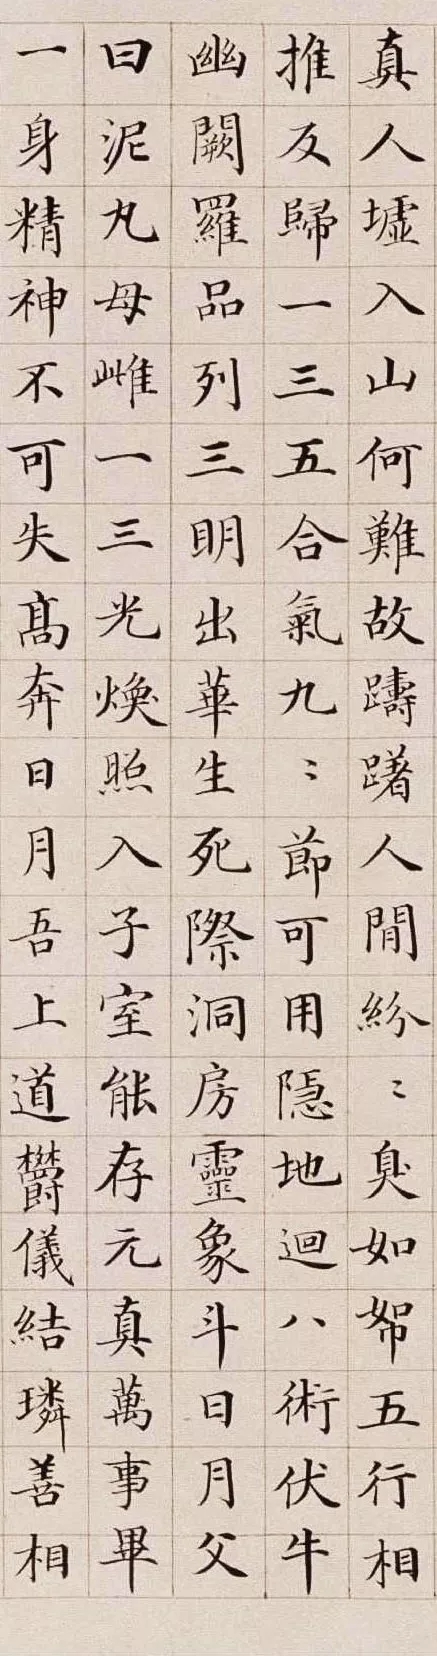 真人墟入山何難故躊躇人間紛〻臭如帤五行相
推反歸一三五合氣九〻節可用隱地迴八術伏牛
幽闕羅品列三明出華生死際洞房靈象斗日月父
曰泥丸母雌一三光煥照入子室能存元真萬事畢
一身精神不可失高奔日月吾上道欎儀結璘善相